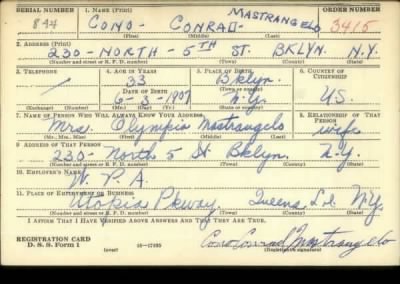 SERIAL NUMBER 1. NAME (Print) ORDER NUMBER
844 CONO - CONRAD - MASTRANGELO 3415
(First) (Middle) (Last)
2. ADDRESS (Print)
230 - NORTH - 5TH ST. BKLYN. N.Y.
(Number and street or R. F. D. number) (Town) (County) (State)
3. TELEPHONE 4. AGE IN YEARS 5. PLACE OF BIRTH 6. COUNTRY OF CITIZENSHIP
33 Bklyn.
DATE OF BIRTH (Town or county)
6-3-1907 N.Y. U.S.
(Exchange) (Number) (Mo.) (Day) (Yr.) (State or country)
7. NAME OF PERSON WHO WILL ALWAYS KNOW YOUR ADDRESS 8. RELATIONSHIP OF THAT PERSON
Mrs. Olympia Mastrangelo wife
(Mr., Mrs., Miss) (First) (Middle) (Last)
9. ADDRESS OF THAT PERSON
230- North 5 St Bklyn. N.Y.
(Number and street or R. F. D. number) (Town) (County) (State)
10. EMPLOYER'S NAME
W. P. A.
11. PLACE OF EMPLOYMENT OR BUSINESS
Utopia Pkway, Queens L.I. N.Y.
(Number and street or R. F. D. number) (Town) (County) (State)
I AFFIRM THAT I HAVE VERIFIED ABOVE ANSWERS AND THAT THEY ARE TRUE.
REGISTRATION CARD
D. S. S. Form 1 (over) 16—17105 Cono Conrad Mastrangelo
(Registrant's signature)